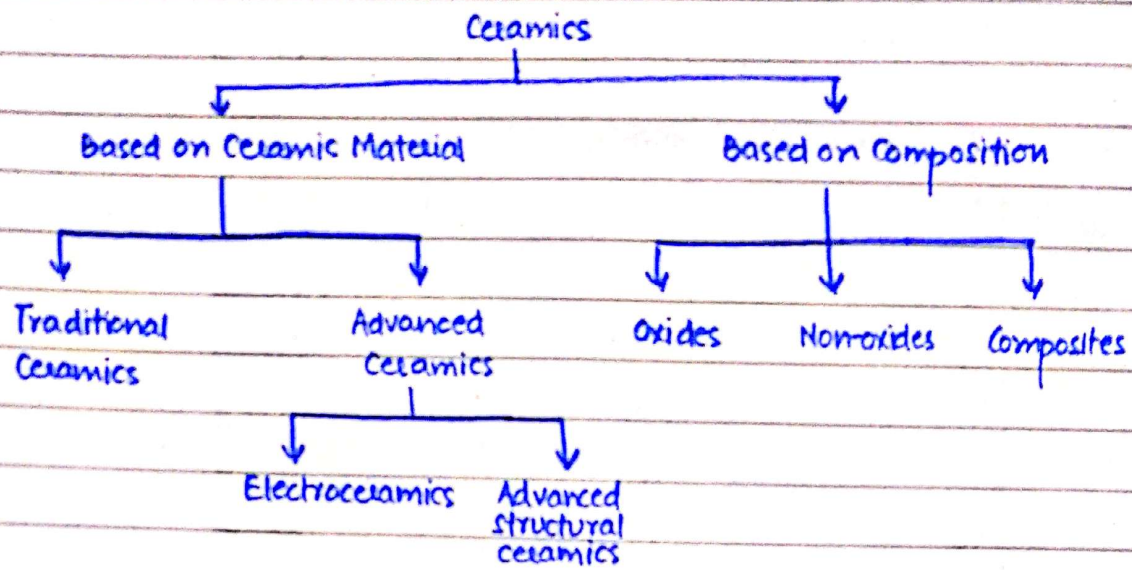 Ceramics
Based on Ceramic Material
Based on Composition
Traditional
Ceramics
Advanced
Ceramics
Oxides
Non-oxides
Composites
Electroceramics
Advanced
structural
ceramics